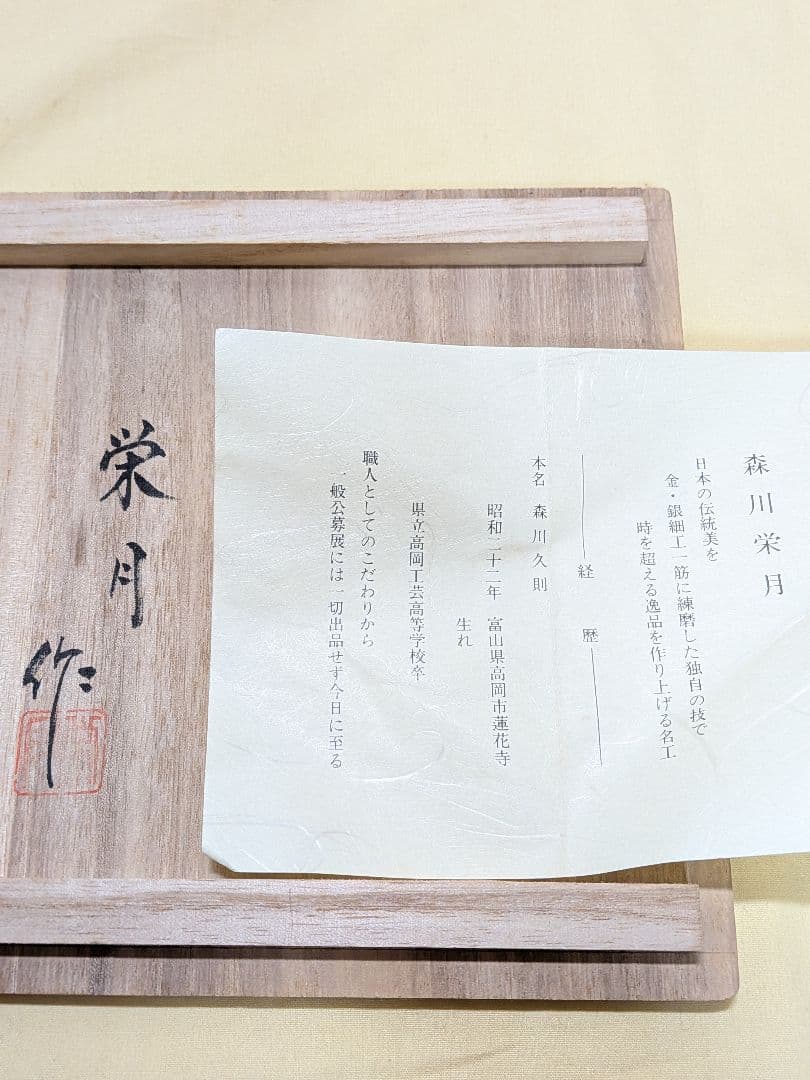 森川栄月
日本の伝統美を
金・銀細工一筋に練磨した独自の技で
時を超える逸品を作り上げる名工
経歴
本名 森川久則
昭和二十二年 富山県高岡市蓮花寺
生れ
県立高岡工芸高等学校卒
職人としてのこだわりから
一般公募展には一切出品せず今日に至る
栄月
作